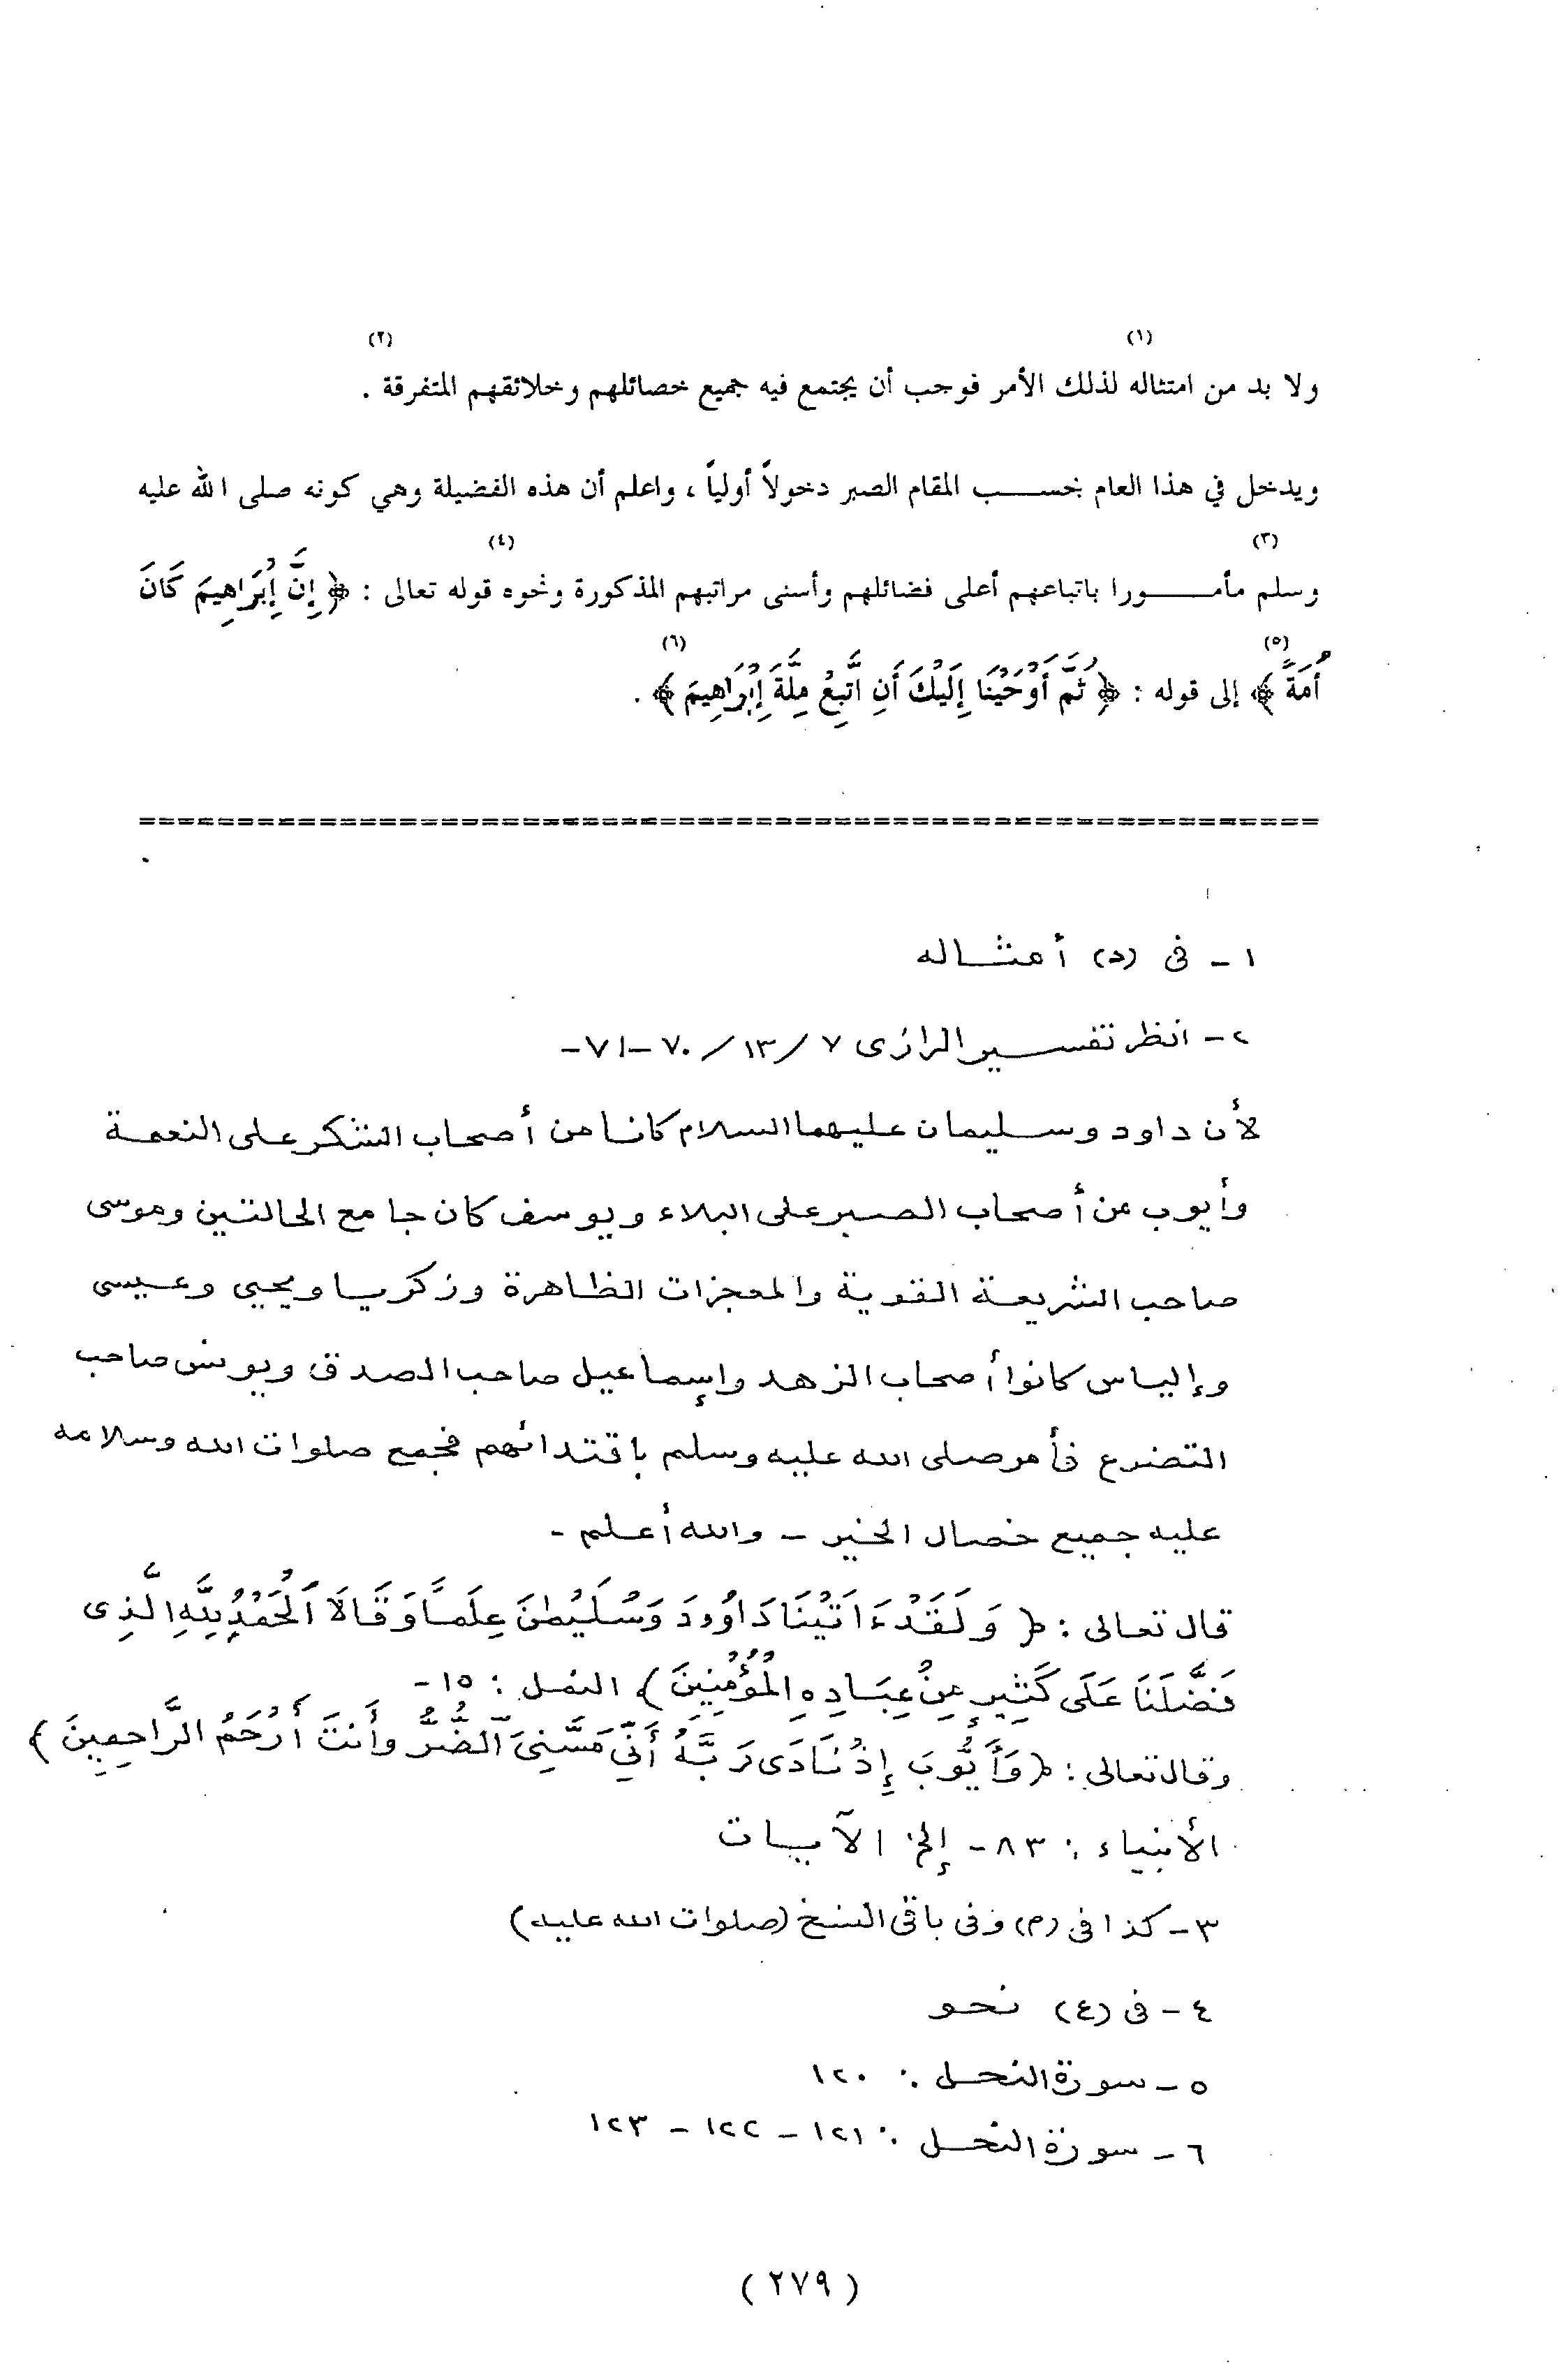 (١) (٢)
ولا بد من امتثاله لذلك الأمر فوجب أن يجتمع فيه جميع خصائلهم وخلائقهم المتفرقة .
ويدخل في هذا العام بحسب المقام الصبر دخولاً أولياً ، واعلم أن هذه الفضيلة وهي كونه صلى الله عليه
(٣) (٤)
وسلم مأمورا باتباعهم أعلى فضائلهم وأسنى مراتبهم المذكورة ونحوه قوله تعالى : ﴿ إِنَّ إِبْرَاهِيمَ كَانَ
(٥) (٦)
أُمَةً ﴾ إلى قوله : ﴿ ثُمَّ أَوْحَيْنَا إِلَيْكَ أَنِ اتَّبِعْ مِلَّةَ إِبْرَاهِيمَ ﴾ .
١ - فى (د) أمثاله
٢ - انظر تفسير الرازى ٧ / ١٣ / ٧٠ - ٧١ -
لأن داود وسليمان عليهما السلام كانا من أصحاب الشكر على النعمة
وأيوب من أصحاب الصبر على البلاء ويوسف كان جامع الحالتين وموسى
صاحب الشريعة القوية والمعجزات الظاهرة وزكريا ويحيى وعيسى
وإلياس كانوا أصحاب الزهد وإسماعيل صاحب الصدق ويونس صاحب
التضرع فأمر صلى الله عليه وسلم باقتدائهم فجمع صلوات الله وسلامه
عليه جميع خصال الخير - والله أعلم -
قال تعالى : ﴿ وَلَقَدْ ءَاتَيْنَا دَاوُودَ وَسُلَيْمٰنَ عِلْمًا وَقَالَا الْحَمْدُ لِلَّهِ الَّذِى
فَضَّلَنَا عَلَى كَثِيرٍ مِنْ عِبَادِهِ الْمُؤْمِنِينَ ﴾ النمل : ١٥ -
وقال تعالى : ﴿ وَأَيُّوبَ إِذْ نَادَى رَبَّهُ أَنِّي مَسَّنِيَ الضُّرُّ وَأَنتَ أَرْحَمُ الرَّاحِمِينَ ﴾
الأنبياء : ٨٣ - إلخ الآيات
٣ - كذا فى (م) وفى باقى النسخ (صلوات الله عليه)
٤ - فى (ع) نحو
٥ - سورة النحل : ١٢٠
٦ - سورة النحل : ١٢١ - ١٢٢ - ١٢٣
( ٢٧٩ )